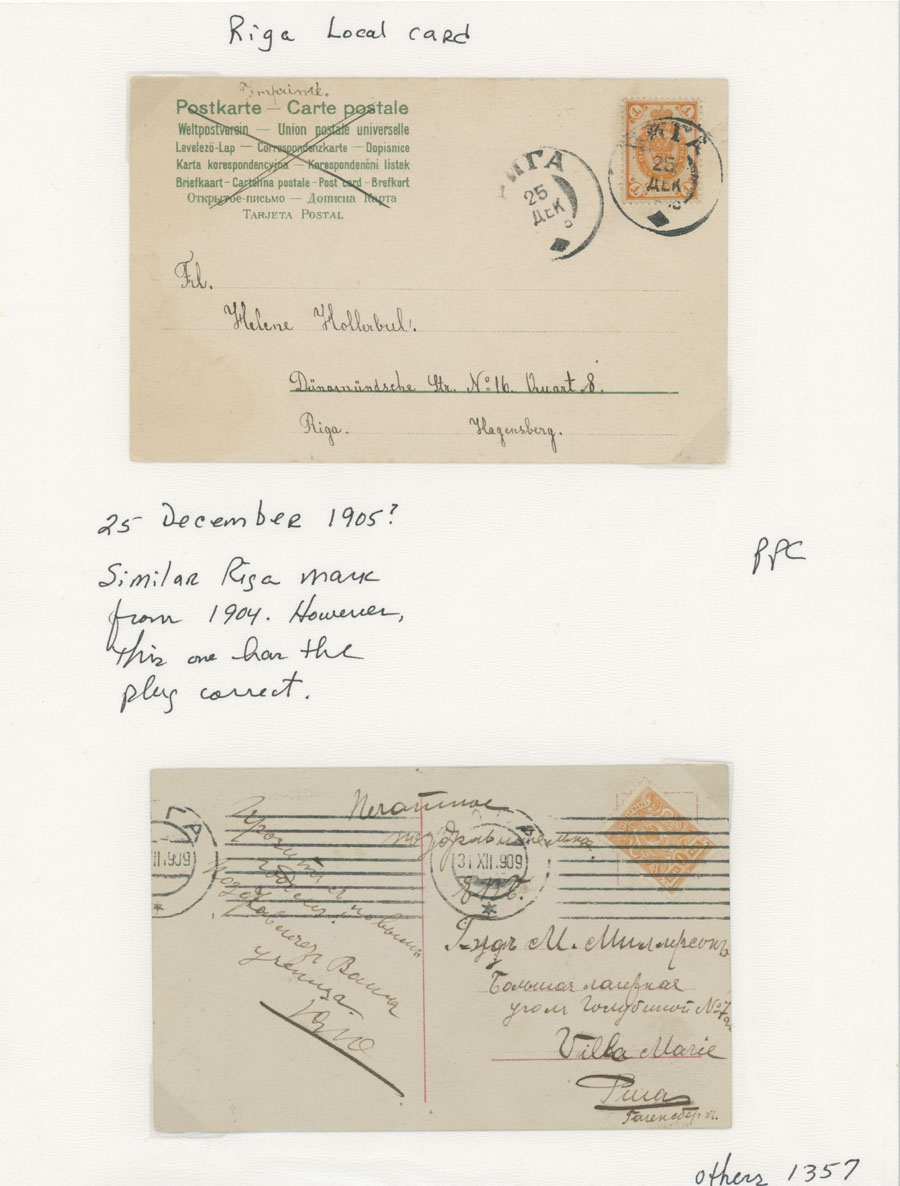 Riga Local card
Imprimé.
Postkarte — Carte postale
Weltpostverein — Union postale universelle
Levelező-Lap — Correspondenzkarte — Dopisnice
Karta korespondencyjna — Korespondenční listek
Briefkaart - Cartolina postale - Post card - Brefkort
Открытое-письмо — Дописна карта
TARJETA POSTAL
РИГА
25
ДЕК
РИГА
25
ДЕК
Frl.
Helene
Dünamündsche Str. No 16. Quart 8.
Riga. Hagensberg.
25 December 1905?
Similar Riga mark
from 1904. However,
this one has the
plug correct.
PPC
Печатное
31 XII.909
II.909
новым
годом!
Ваша
ученица
М.
Большая лагерная
угол Голубиной № 7
Villa Marie
Рига
others 1357